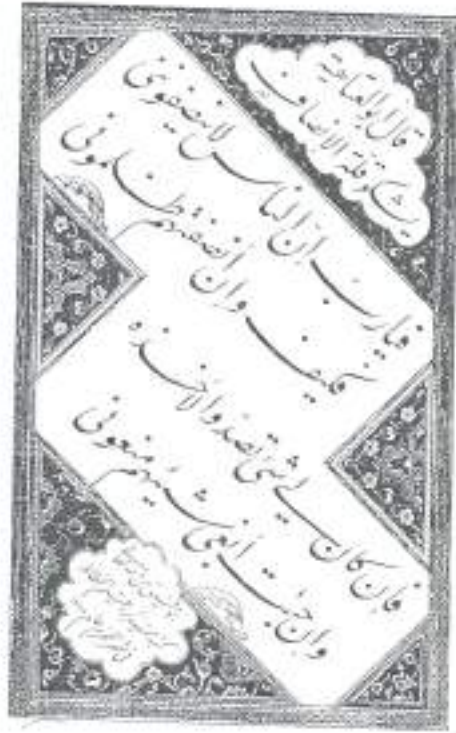 قال ابو العتاهية
يشكو قلة الانصاف
فيارب ان الناس لا ينصفونني
فكيف وان انصفتهم ظلموني
فان كان لي شئ تصدوا لاخذه
وان جئت ابغي شيئهم منعوني